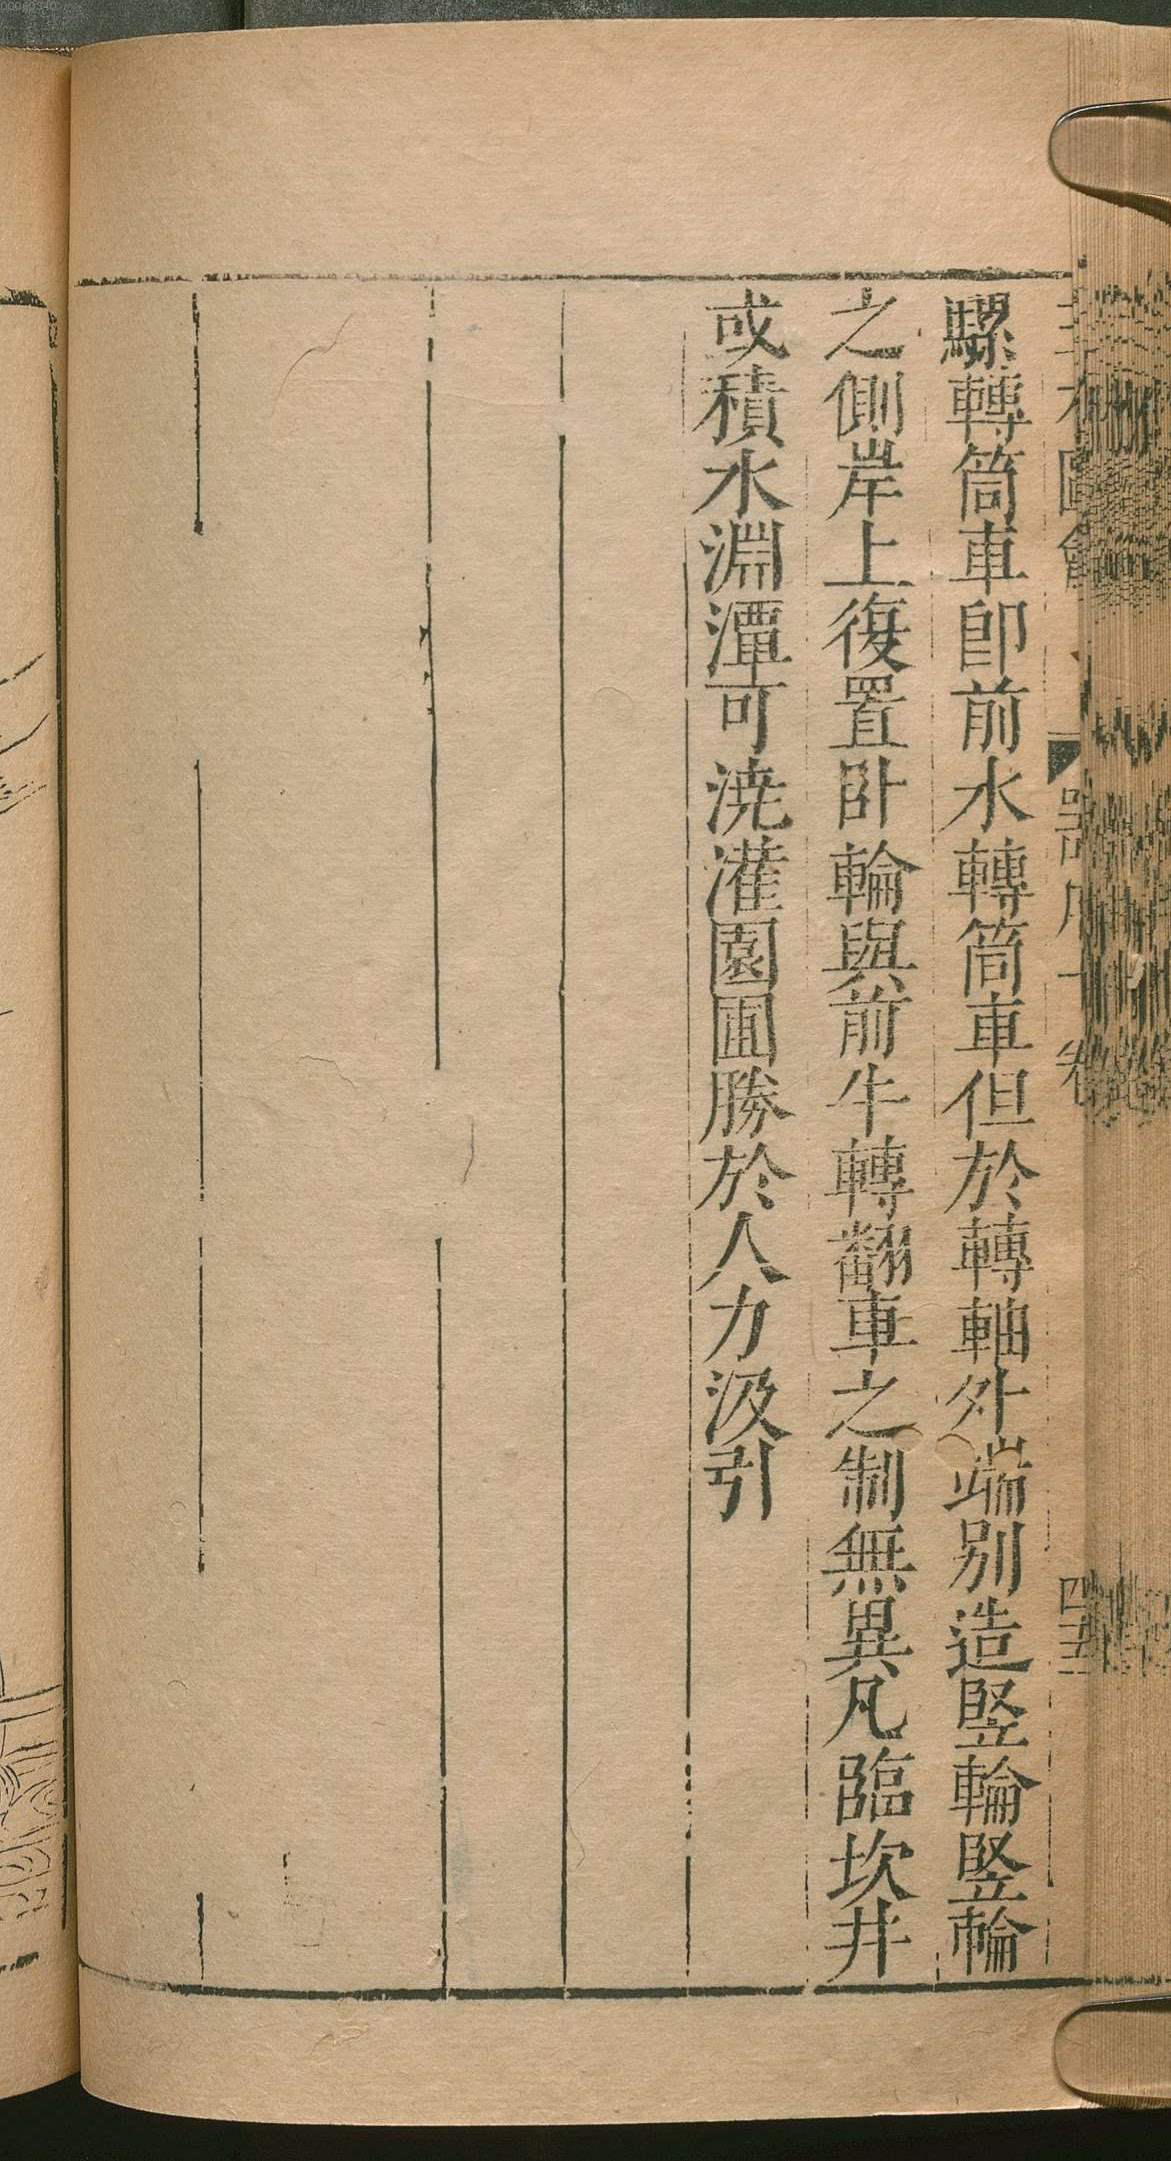 騾轉筒車卽前水轉筒車但於轉軸外端別造竪輪竪輪
之側岸上復置卧輪與前牛轉翻車之制無異凡臨坎井
或積水淵潭可澆灌園圃勝於人力汲引